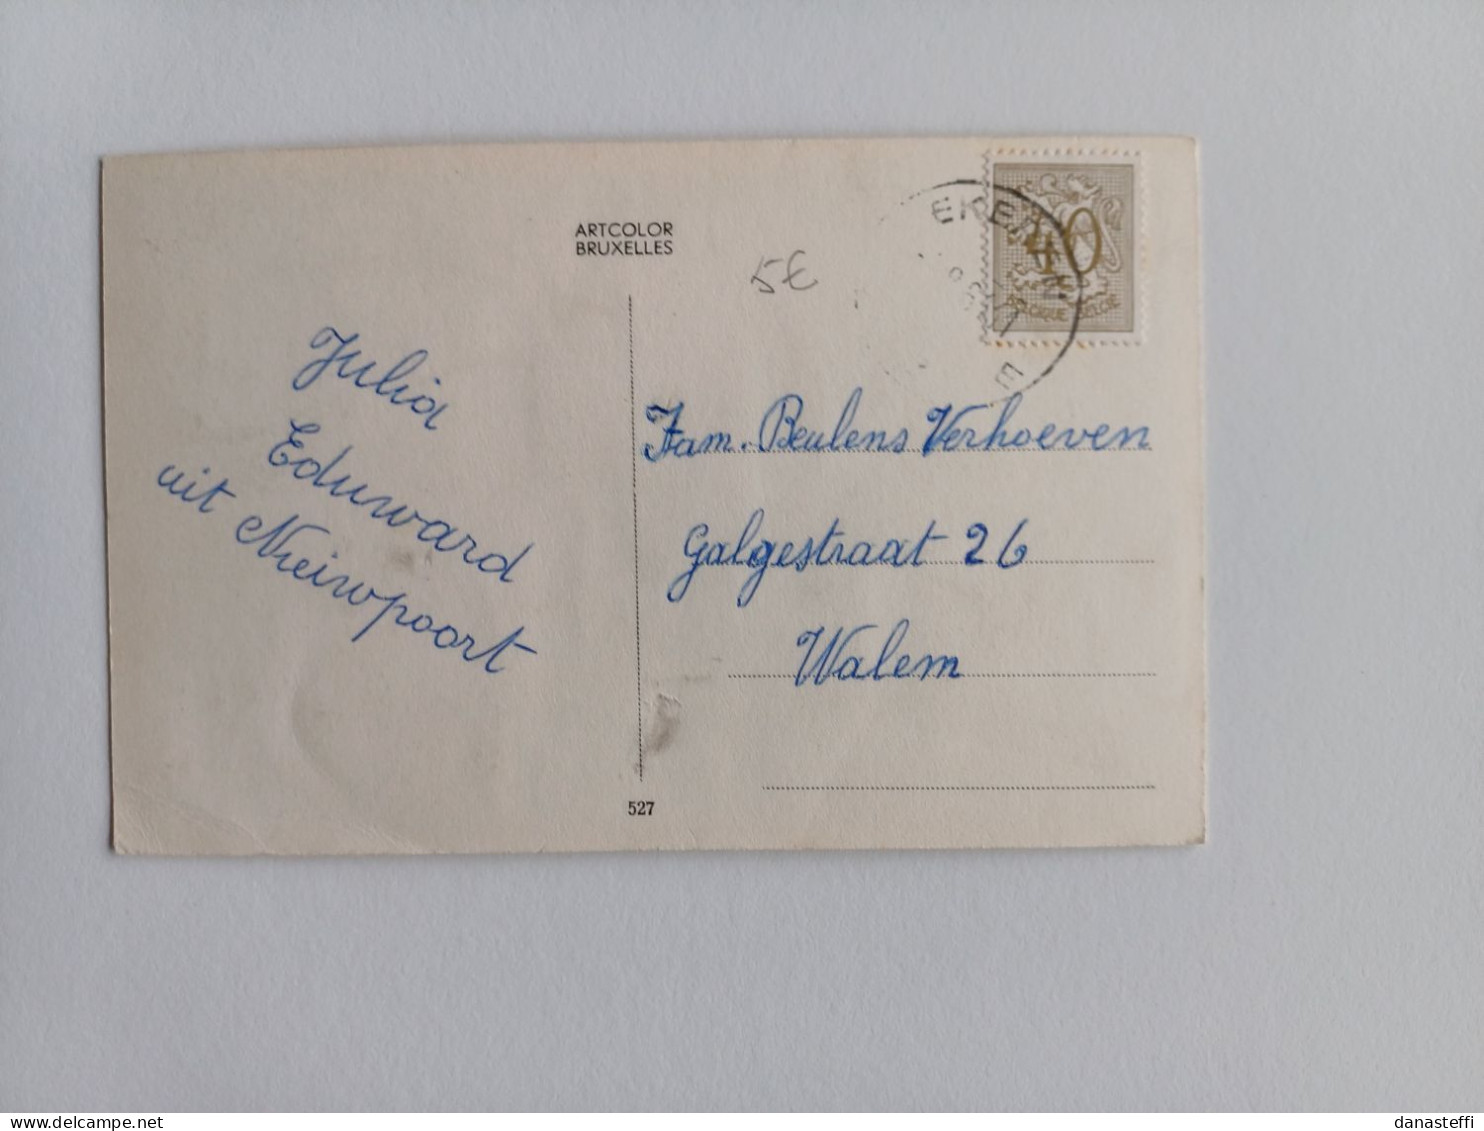 ARTCOLOR
BRUXELLES
5€
40
BELGIQUE BELGIË
Julia
Eduward
uit Nieiwpoort
Fam. Beulens Verhoeven
Galgestraat 26
Walem
527
danasteffi